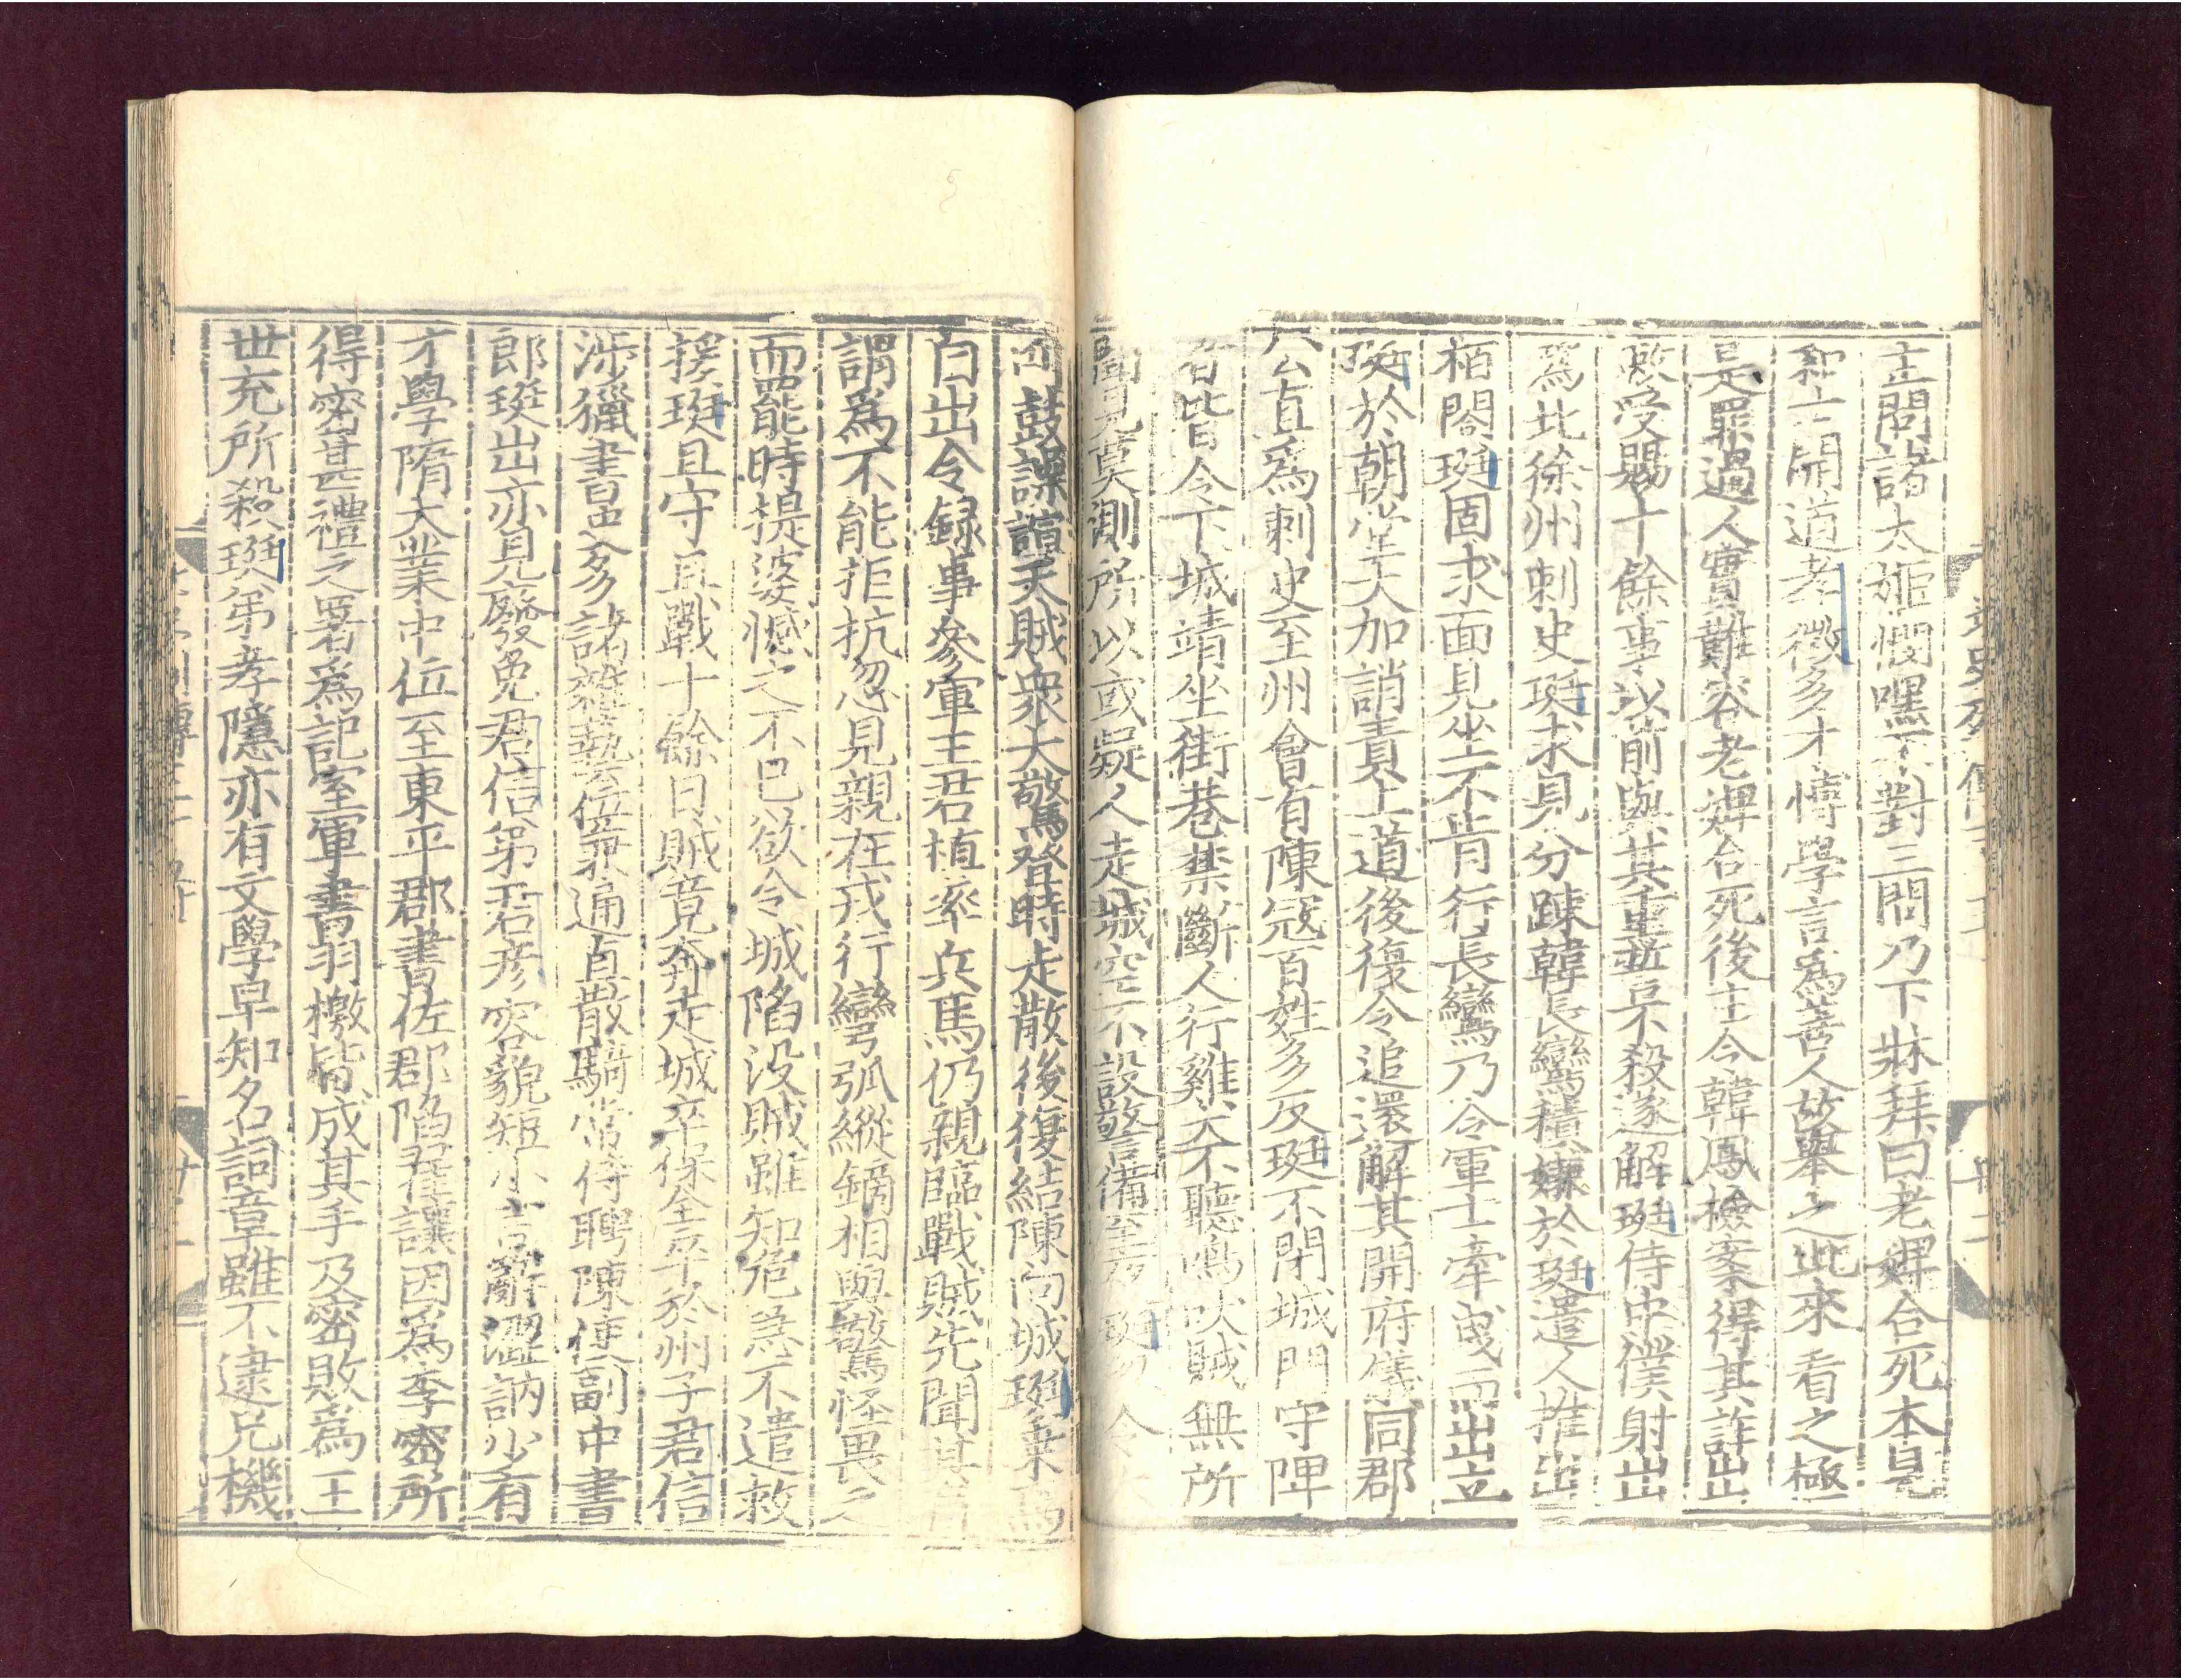 主問諸太姬憫嘿不對三問乃下牀拜曰老婢合死本見
和士開道孝徵多才博學言爲善人故舉之此來看之極
是罪過人實難容老婢合死後主令韓鳳檢案得其詐出
敕受賜十餘事以前與其重誓不殺遂解珽侍中僕射出
爲北徐州刺史珽求見分疎韓長鸞積嫌於珽遣人推出
栢閤珽固求面見坐不肯行長鸞乃令軍士牽曳而出立
珽於朝堂大加誚責上道後復令追還解其開府儀同郡
公直爲刺史至州會有陳寇百姓多反珽不閉城門守陴
者皆令下城靖坐街巷禁斷人行雞犬不聽鳴吠賊無所
聞見莫測所以或疑人走城空不設警備至夜珽忽令
鼓譟諠天賊衆大驚登時走散後復結陳向城珽乗馬
自出令録事參軍王君植率兵馬仍親臨戰賊先聞其
謂爲不能拒抗忽見親在戎行彎弧縱鏑相與驚怪畏之
而罷時提婆憾之不已欲令城陷沒賊雖知危急不遣救
援珽且守且戰十餘日賊竟奔走城卒保全卒於州子君信
涉獵書史多諸雜藝位兼通直散騎常侍聘陳使副中書
郎珽出亦見廢免君信弟君彦容貌短小言辭澀訥少有
才學隋大業中位至東平郡書佐郡陷翟讓因爲李密所
得密甚禮之署爲記室軍書羽檄皆成其手及密敗爲王
世充所殺珽弟孝隱亦有文學早知名詞章雖不逮兄機